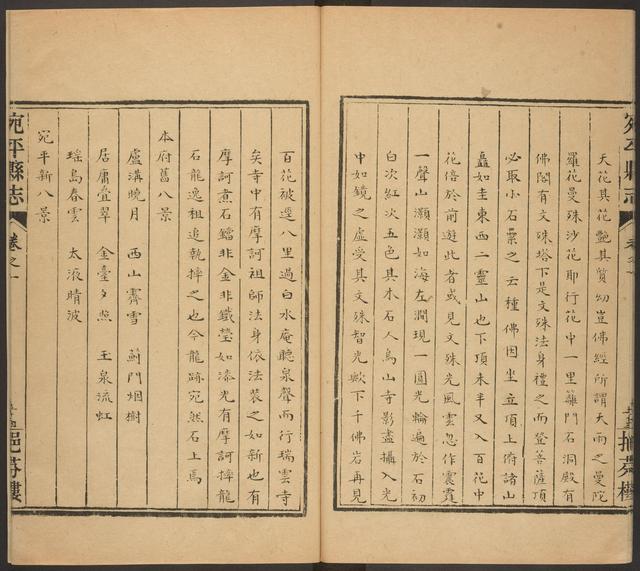 天花其花艷其質幼豈佛經所謂天雨之曼陀
羅花曼殊沙花耶行花中一里蘿門石洞殿有
佛閣有文殊塔下是文殊法身禮之而登菩薩頂
必取小石纍之云種佛因坐立頂上俯諸山
矗如圭東西二靈山也下頂未半又入百花中
花倍於前遊此者或見文殊光風雲忽作震霣
一聲山灝灝如海左澗現一圓光輪遍於石初
白次紅次五色其木石人鳥山寺影盡攝入光
中如鏡之虛受其文殊智光歟下千佛岩再見
百花被逕八里過白水庵聽泉聲而行瑞雲寺
矣寺中有摩訶祖師法身依法裝之如新也有
摩訶煮石鐺非金非鐵瑩如漆光有摩訶捽龍
石龍逸祖追執捽之也今龍跡宛然石上焉
本府舊八景
盧溝曉月 西山霽雪 薊門烟樹
居庸疊翠 金臺夕照 玉泉流虹
瑤島春雲 太液晴波
宛平新八景
宛平縣志
卷之一